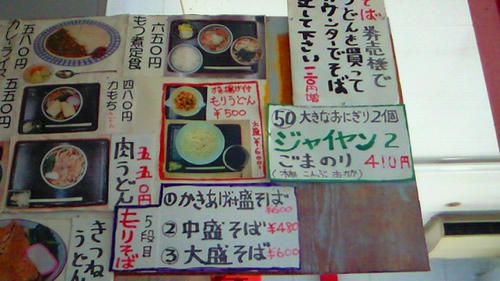 そば
券売様で
うどんを買って
カウンターでそば
して下さい
カレーライス
五五〇円
もつ煮定食
六五〇円
四八〇円
力もち
もりうどん
¥500
大盛¥600
50 大きなおにぎり2個
ジャイヤン2
ごまのり 410円
肉うどん
五五〇円
もりそば
5段目
①かきあげ付盛そば
¥600
②中盛そば ¥480
③大盛そば ¥600
きつね
うどん